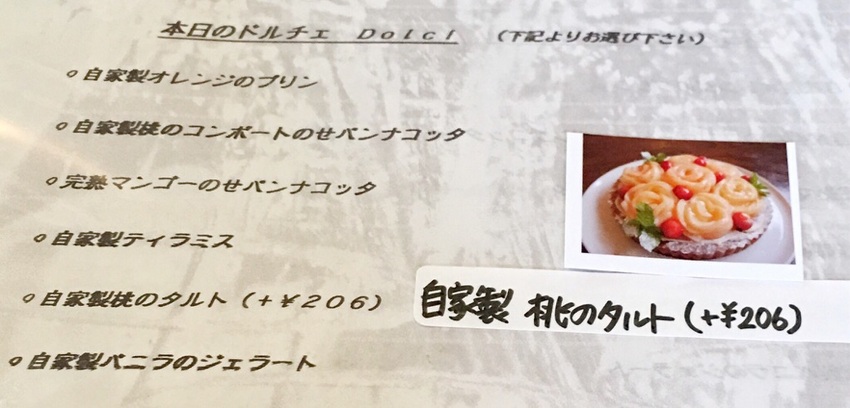 本日のドルチェ　Ｄｏｌｃｉ　（下記よりお選び下さい）
○自家製オレンジのプリン
○自家製桃のコンポートのせパンナコッタ
○完熟マンゴーのせパンナコッタ
○自家製ティラミス
○自家製桃のタルト（＋￥２０６）
自家製 桃のタルト(+¥206)
○自家製バニラのジェラート